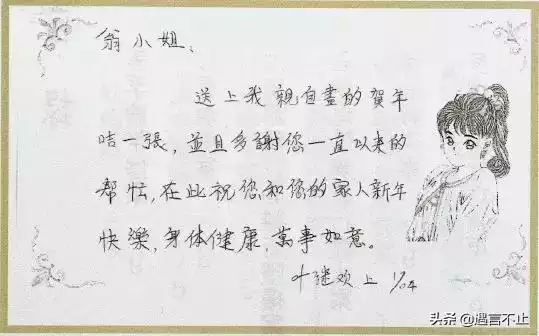 翁小姐：
送上我親自畫的賀年
咭一張，並且多謝您一直以來的
幫忙，在此祝您和您的家人新年
快樂，身体健康，萬事如意。
叶继欢上 1/04
头条 @遇言不止